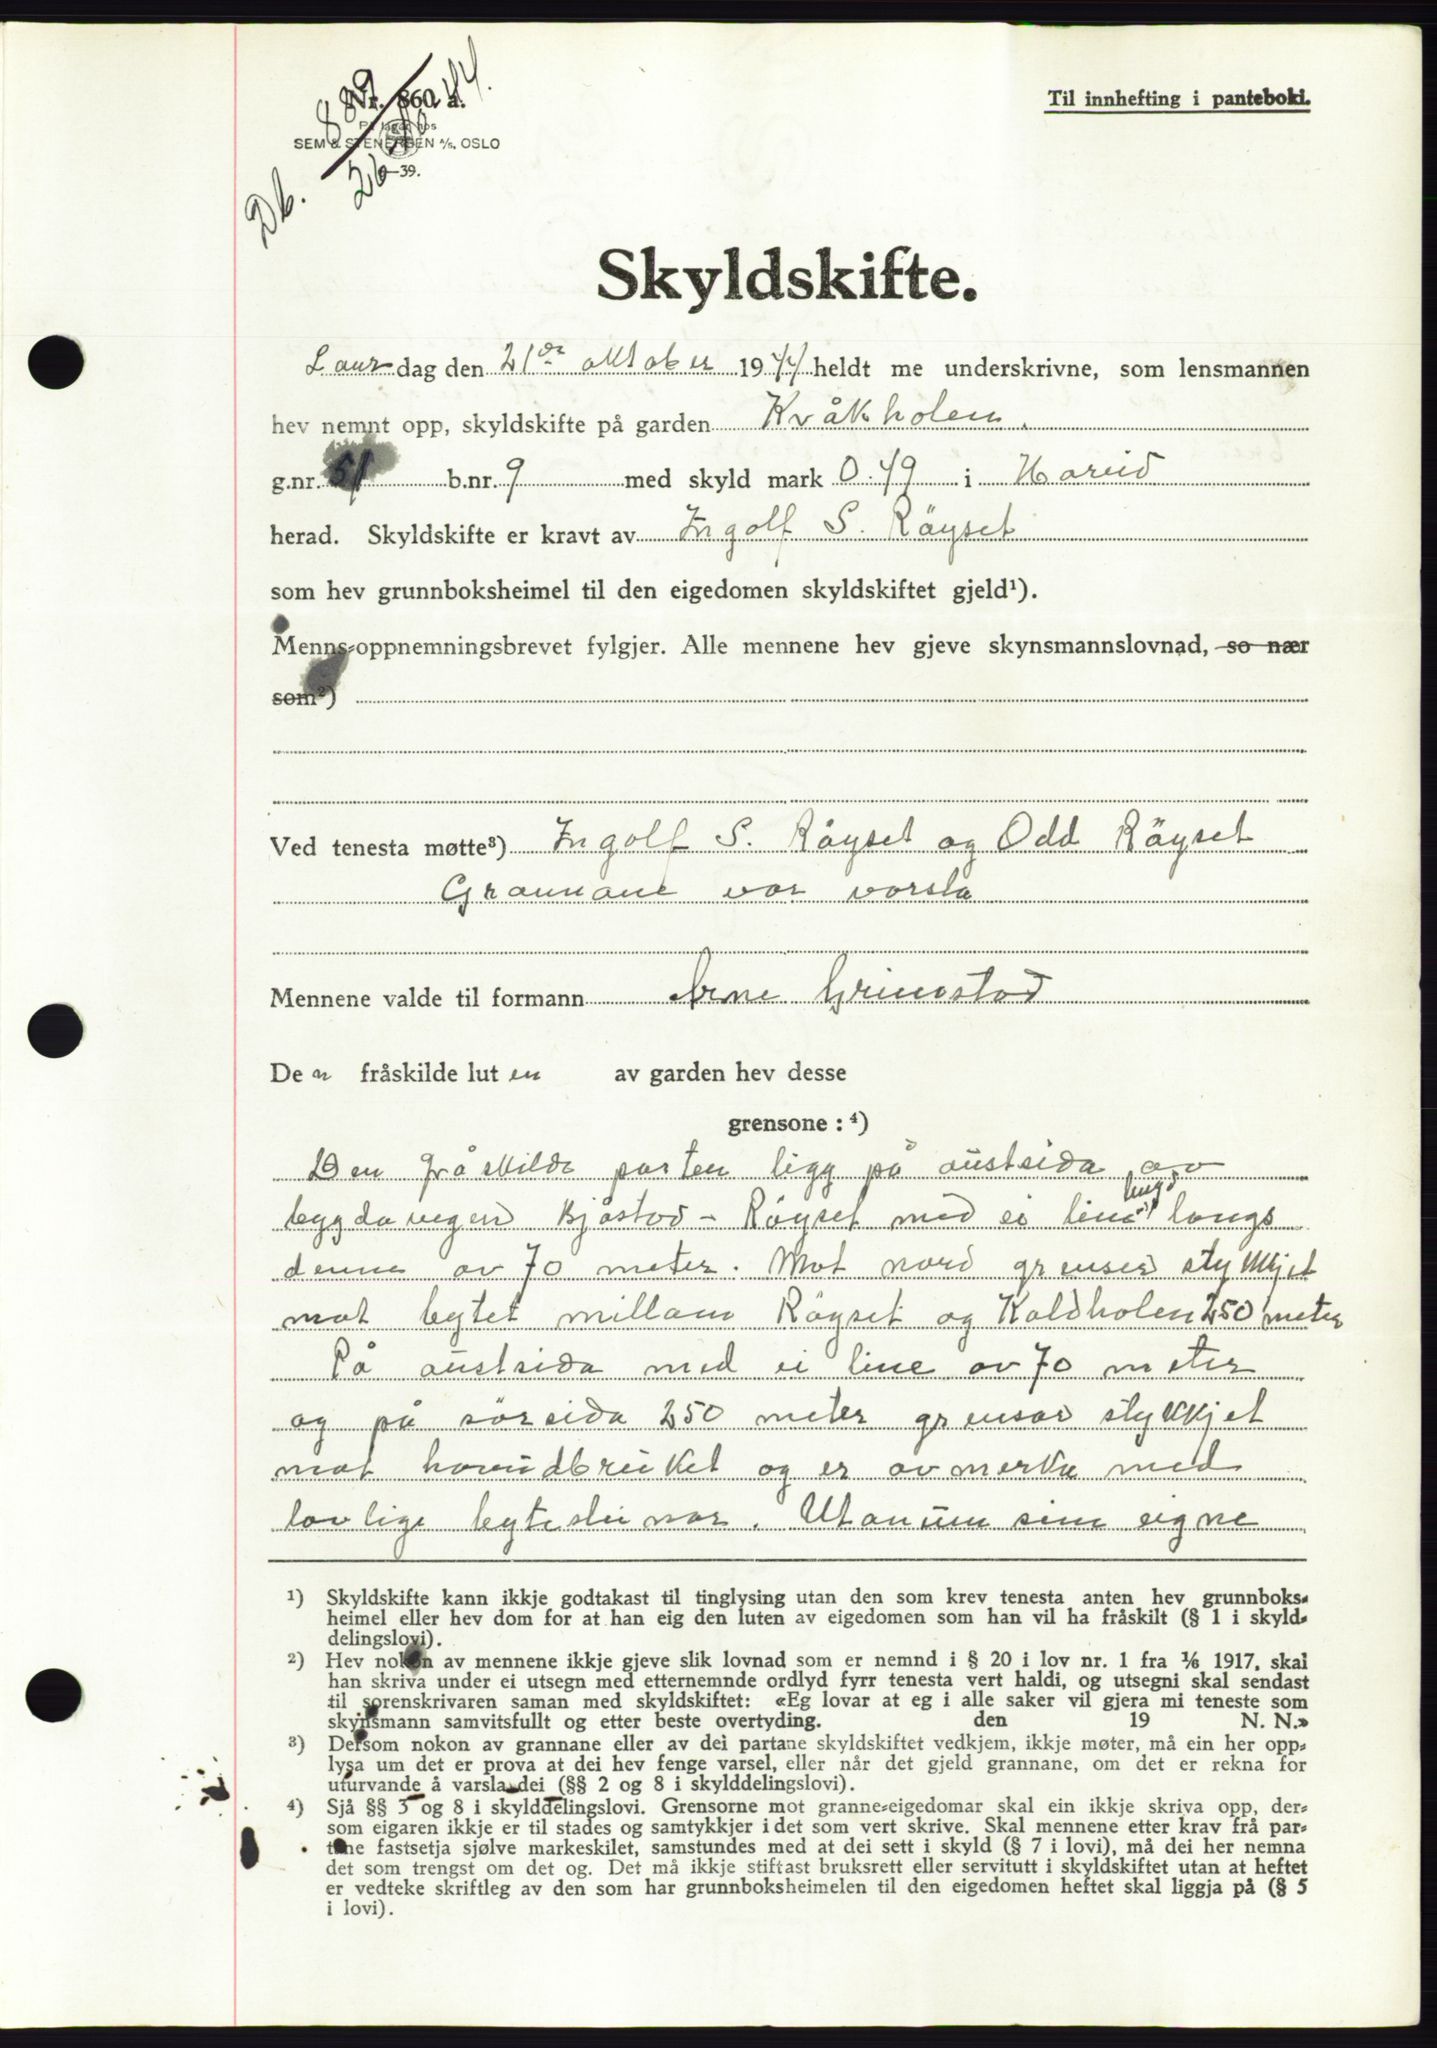 Db. 889/26/10-44.
Nr. 860 a.
På lager hos
SEM & STENERSEN A/S, OSLO
39.
Til innhefting i panteboki.
Skyldskifte.
Laur dag den 21de oktober 1944 heldt me underskrivne, som lensmannen
hev nemnt opp, skyldskifte på garden Kvåkholen.
g.nr. 51 b.nr. 9 med skyld mark 0.49 i Hareid
herad. Skyldskifte er kravt av Ingolf S. Röyset
som hev grunnboksheimel til den eigedomen skyldskiftet gjeld¹).
Menns-oppnemningsbrevet fylgjer. Alle mennene hev gjeve skynsmannslovnad, so nær
som²)
Ved tenesta møtte³) Ingolf S. Röyset og Odd Röyset
Grannane var varsla
Mennene valde til formann Arne Grimstad
De n fråskilde lut en av garden hev desse
grensone : ⁴)
Den fråskilde parten ligg på austsida av
bygdavegen Bjåstad - Röyset med ei line lengd langs
denne av 70 meter. Mot nord grensar stykkjet
mot bytet millom Röyset og Kaldholen 250 meter
På austsida med ei line av 70 meter
og på sörsida 250 meter grensar stykkjet
mot hovudbruket og er avmerka med
lovlige bytesteinar. Utanum sine eigne
¹) Skyldskifte kann ikkje godtakast til tinglysing utan den som krev tenesta anten hev grunnboks-
heimel eller hev dom for at han eig den luten av eigedomen som han vil ha fråskilt (§ 1 i skyld-
delingslovi).
²) Hev nokon av mennene ikkje gjeve slik lovnad som er nemnd i § 20 i lov nr. 1 fra 1/6 1917, skal
han skriva under ei utsegn med etternemnde ordlyd fyrr tenesta vert haldi, og utsegni skal sendast
til sorenskrivaren saman med skyldskiftet: «Eg lovar at eg i alle saker vil gjera mi teneste som
skynsmann samvitsfullt og etter beste overtyding. den 19 N. N.»
³) Dersom nokon av grannane eller av dei partane skyldskiftet vedkjem, ikkje møter, må ein her opp-
lysa um det er prova at dei hev fenge varsel, eller når det gjeld grannane, om det er rekna for
uturvande å varsla dei (§§ 2 og 8 i skylddelingslovi).
⁴) Sjå §§ 3 og 8 i skylddelingslovi. Grensorne mot granne-eigedomar skal ein ikkje skriva opp, der-
som eigaren ikkje er til stades og samtykkjer i det som vert skrive. Skal mennene etter krav frå par-
tane fastsetja sjølve markeskilet, samstundes med at dei sett i skyld (§ 7 i lovi), må dei her nemna
det som trengst om det og. Det må ikkje stiftast bruksrett eller servitutt i skyldskiftet utan at heftet
er vedteke skriftleg av den som har grunnboksheimelen til den eigedomen heftet skal liggja på (§ 5
i lovi).